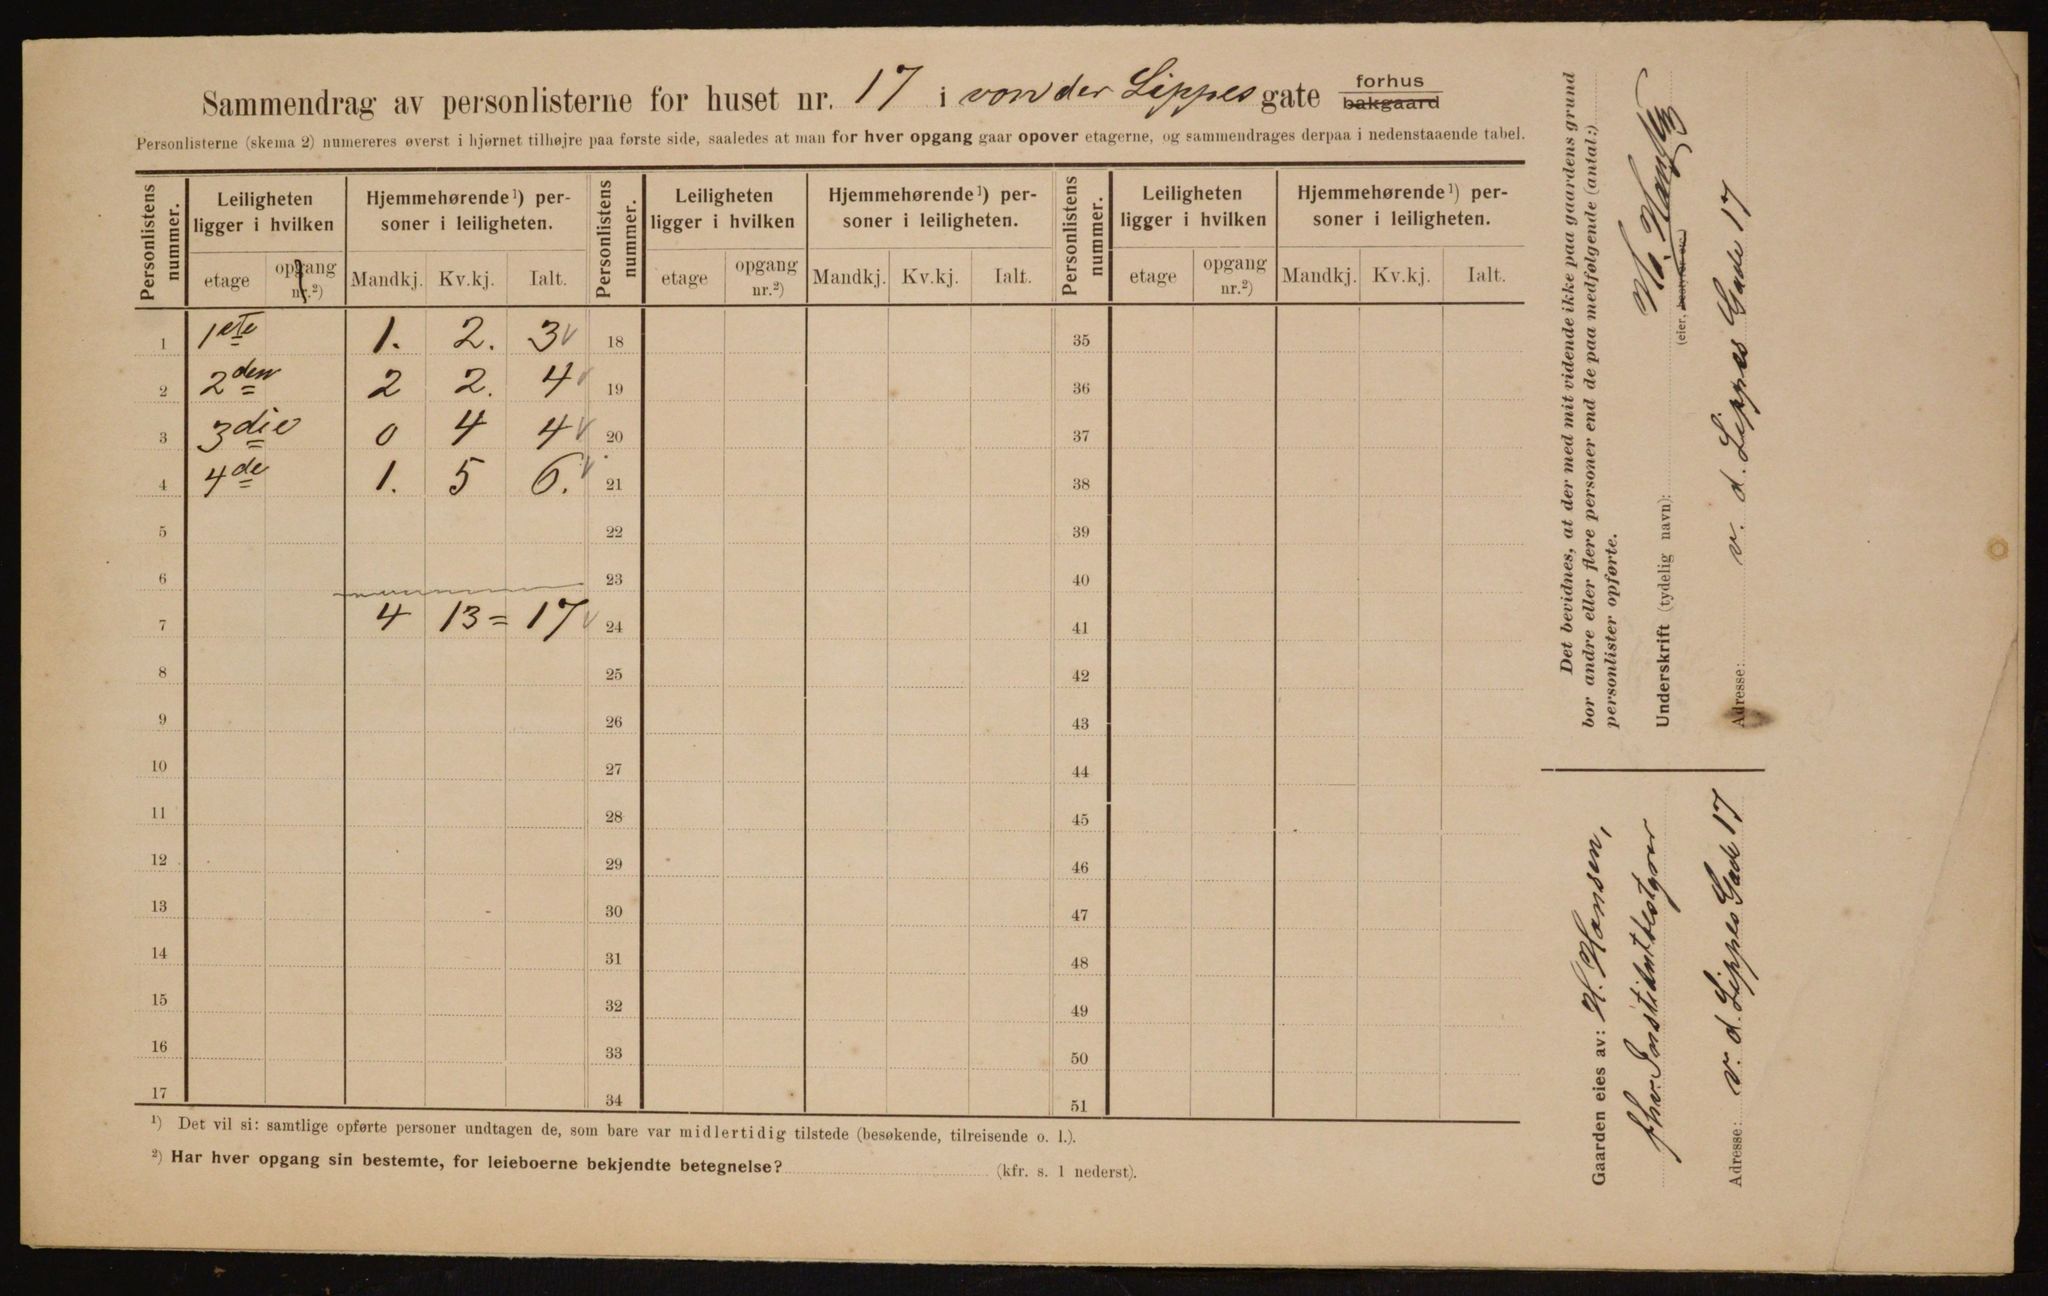 Sammendrag av personlisterne for huset nr. 17 i von der Lippes gate forhus
bakgaard
Personlisterne (skema 2) numereres øverst i hjørnet tilhøjre paa første side, saaledes at man for hver opgang gaar opover etagerne, og sammendrages derpaa i nedenstaaende tabel.
Personlistens nummer. Leiligheten ligger i hvilken Hjemmehørende¹) personer i leiligheten. Personlistens nummer. Leiligheten ligger i hvilken Hjemmehørende¹) personer i leiligheten. Personlistens nummer. Leiligheten ligger i hvilken Hjemmehørende¹) personer i leiligheten.
etage opgang nr.²) Mandkj. Kv.kj. Ialt. etage opgang nr.²) Mandkj. Kv.kj. Ialt. etage opgang nr.²) Mandkj. Kv.kj. Ialt.
1 1ste 1. 2. 3 18 35
2 2den 2 2. 4 19 36
3 3die 0 4 4 20 37
4 4de 1. 5 6. 21 38
5 22 39
6 23 40
7 4 13 = 17 24 41
8 25 42
9 26 43
10 27 44
11 28 45
12 29 46
13 30 47
14 31 48
15 32 49
16 33 50
17 34 51
¹) Det vil si: samtlige opførte personer undtagen de, som bare var midlertidig tilstede (besøkende, tilreisende o. l.).
²) Har hver opgang sin bestemte, for leieboerne bekjendte betegnelse? (kfr. s. 1 nederst).
Det bevidnes, at der med mit vidende ikke paa gaardens grund
bor andre eller flere personer end de paa medfølgende (antal:)
personlister opførte.
Underskrift (tydelig navn):
(eier,
Adresse: v. d. Lippes Gade 17
Gaarden eies av: H. Hansen,
fhv. Institutbestyrer
Adresse: v. d. Lippes Gade 17